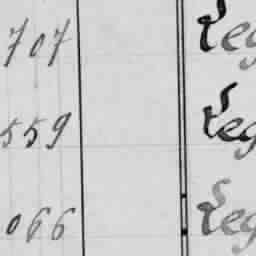 707 Leg
559 Leg
066 Leg